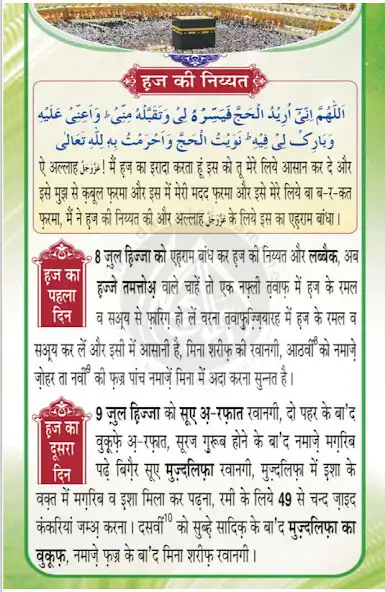 हज की निय्यत
اَللّٰهُمَّ اِنِّىْۤ اُرِيْدُ الْحَجَّ فَيَسِّرْهُ لِىْ وَتَقَبَّلْهُ مِنِّىْ ؕ وَاَعِنِّىْ عَلَيْهِ
وَبَارِكْ لِىْ فِيْهِ ؕ نَوَيْتُ الْحَجَّ وَاَحْرَمْتُ بِهٖ لِلّٰهِ تَعَالٰى
ऐ अल्लाह عَزَّوَجَلَّ ! मैं हज का इरादा करता हूं इस को तू मेरे लिये आसान कर दे और
इसे मुझ से क़बूल फ़रमा और इस में मेरी मदद फ़रमा और इसे मेरे लिये बा ब-र-कत
फ़रमा, मैं ने हज की निय्यत की और अल्लाह عَزَّوَجَلَّ के लिये इस का एहराम बांधा।
हज का
पहला
दिन
8 ज़ुल हिज्जा को एहराम बांध कर हज की निय्यत और लब्बैक, अब
हज्जे तमत्तोअ़ वाले चाहें तो एक नफ़्ली तवाफ़ में हज के रमल
व सअ़्य में फ़ारिग़ हो लें वरना तवाफ़ुज़्ज़ियारह में हज के रमल व
सअ़्य कर लें और इसी में आसानी है, मिना शरीफ़ की रवानगी, आठवीं को नमाज़े
ज़ोहर ता नवीं की फ़ज्र पांच नमाज़ें मिना में अदा करना सुन्नत है।
हज का
दूसरा
दिन
9 ज़ुल हिज्जा को सूए अ़-रफ़ात रवानगी, दो पहर के बा'द
वुक़ूफ़े अ़-रफ़ात, सूरज ग़ुरूब होने के बा'द नमाज़े मग़रिब
पढ़े बिग़ैर सूए मुज़्दलिफ़ा रवानगी, मुज़्दलिफ़ा में इशा के
वक़्त में मग़रिब व इशा मिला कर पढ़ना, रमी के लिये 49 से चन्द ज़ाइद
कंकरियां जम्अ़ करना। दसवीं10 को सुब्हे सादिक़ के बा'द मुज़्दलिफ़ा का
वुक़ूफ़, नमाज़े फ़ज्र के बा'द मिना शरीफ़ रवानगी।